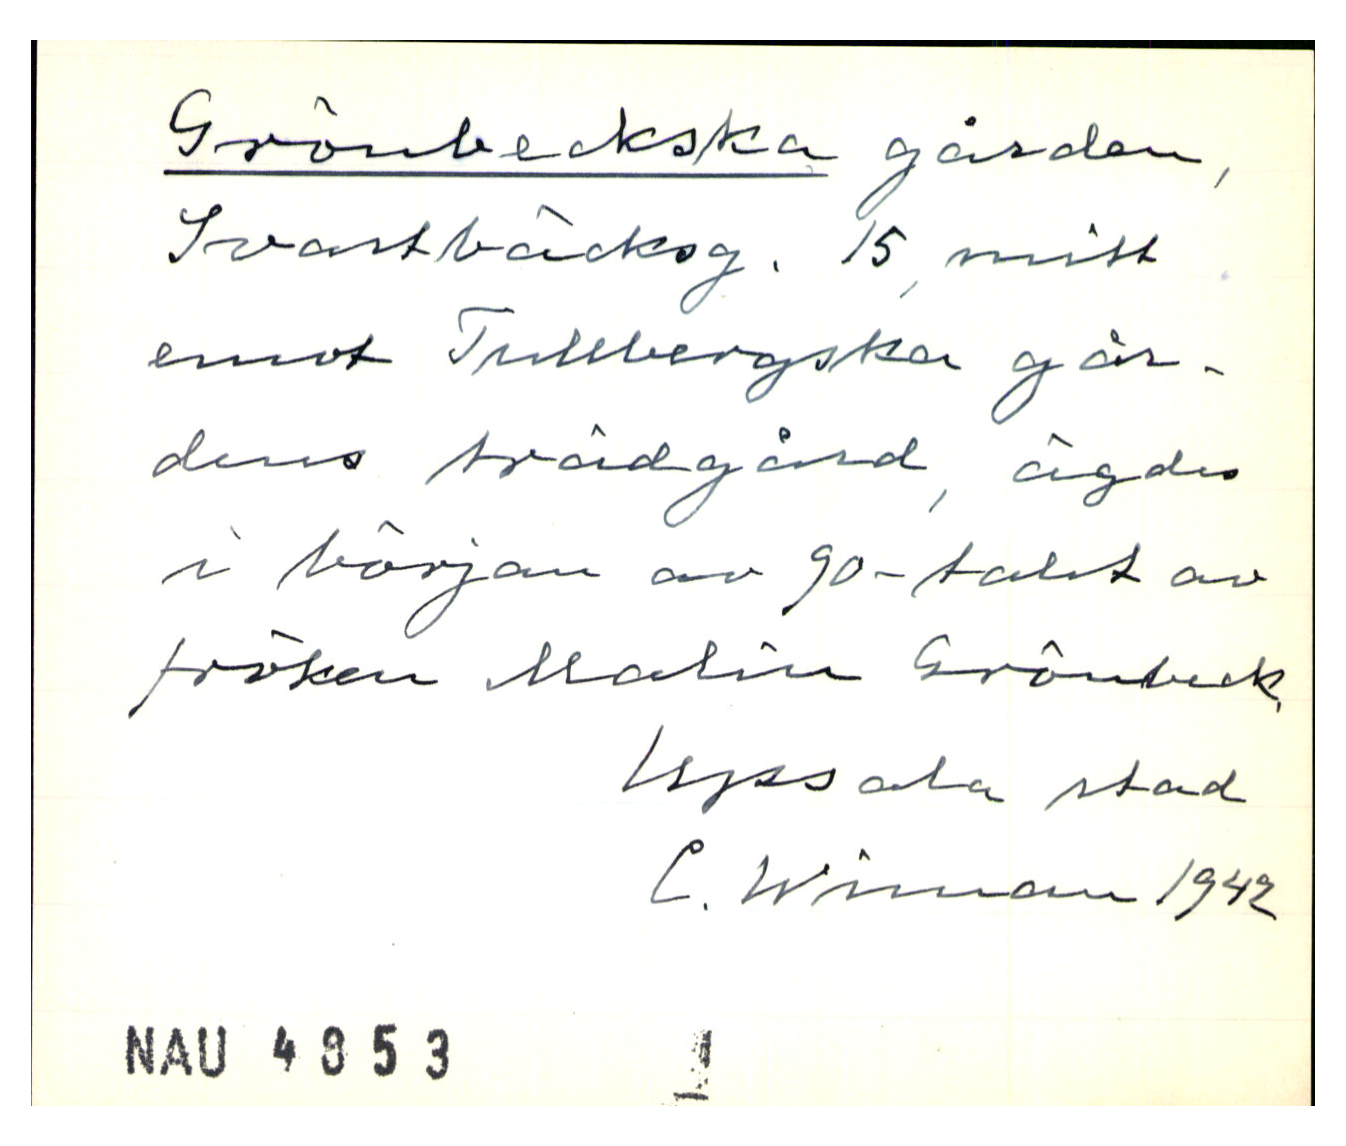 Grönbeckska gården,
Svartbäcksg. 15, mitt
emot Tullbergska går-
dens trädgård, ägdes
i början av 90-talet av
fröken Malin Grönbeck.
Uppsala stad
C. Wiman 1942
NAU 4853